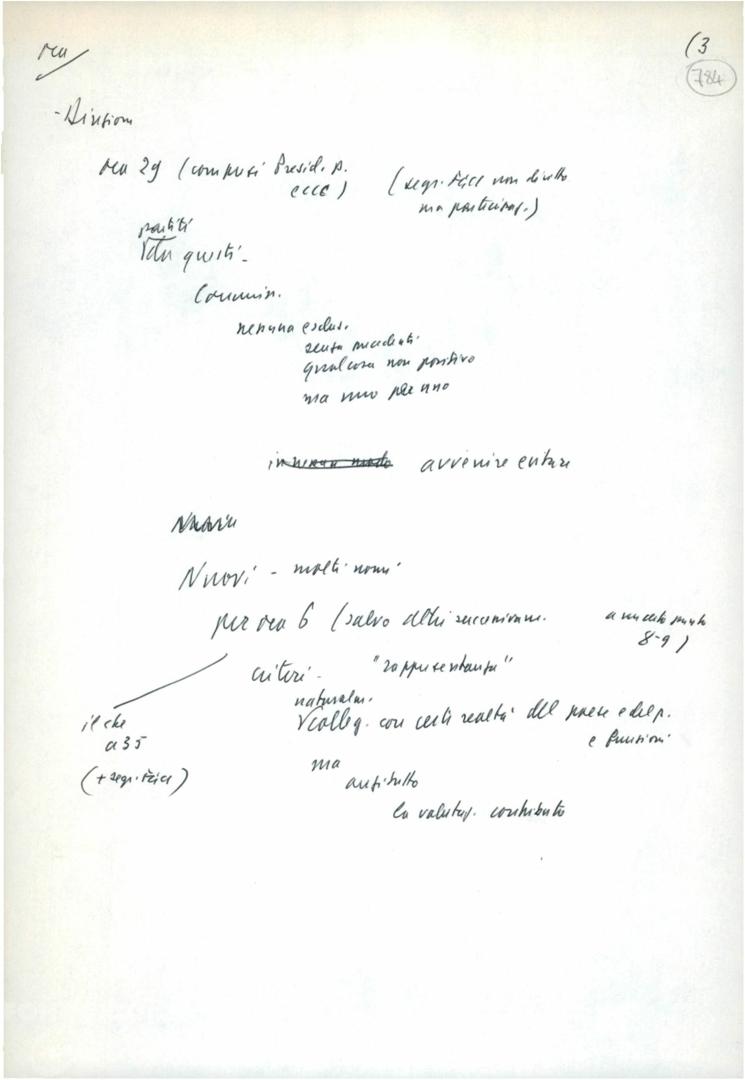 ora
(3
784
- Direzione
ora 29 (compresi Presid. p.
e CCC)
(segr. FGCI non diritto
ma partecipaz.)
partiti
da questi -
Commiss.
nessuna esclus.
senza precedenti
qualcosa non positivo
ma uno per uno
in nessun modo avvenire evitare
Nuovi - molti nomi
per ora 6 (salvo altri successivam.
8-9)
criteri - "rappresentanza"
naturalm.
colleg. con certi realtà del paese e del p.
e funzioni
il che
a 35
(+ segr. FGCI)
ma
anzitutto
la valutaz. contributo